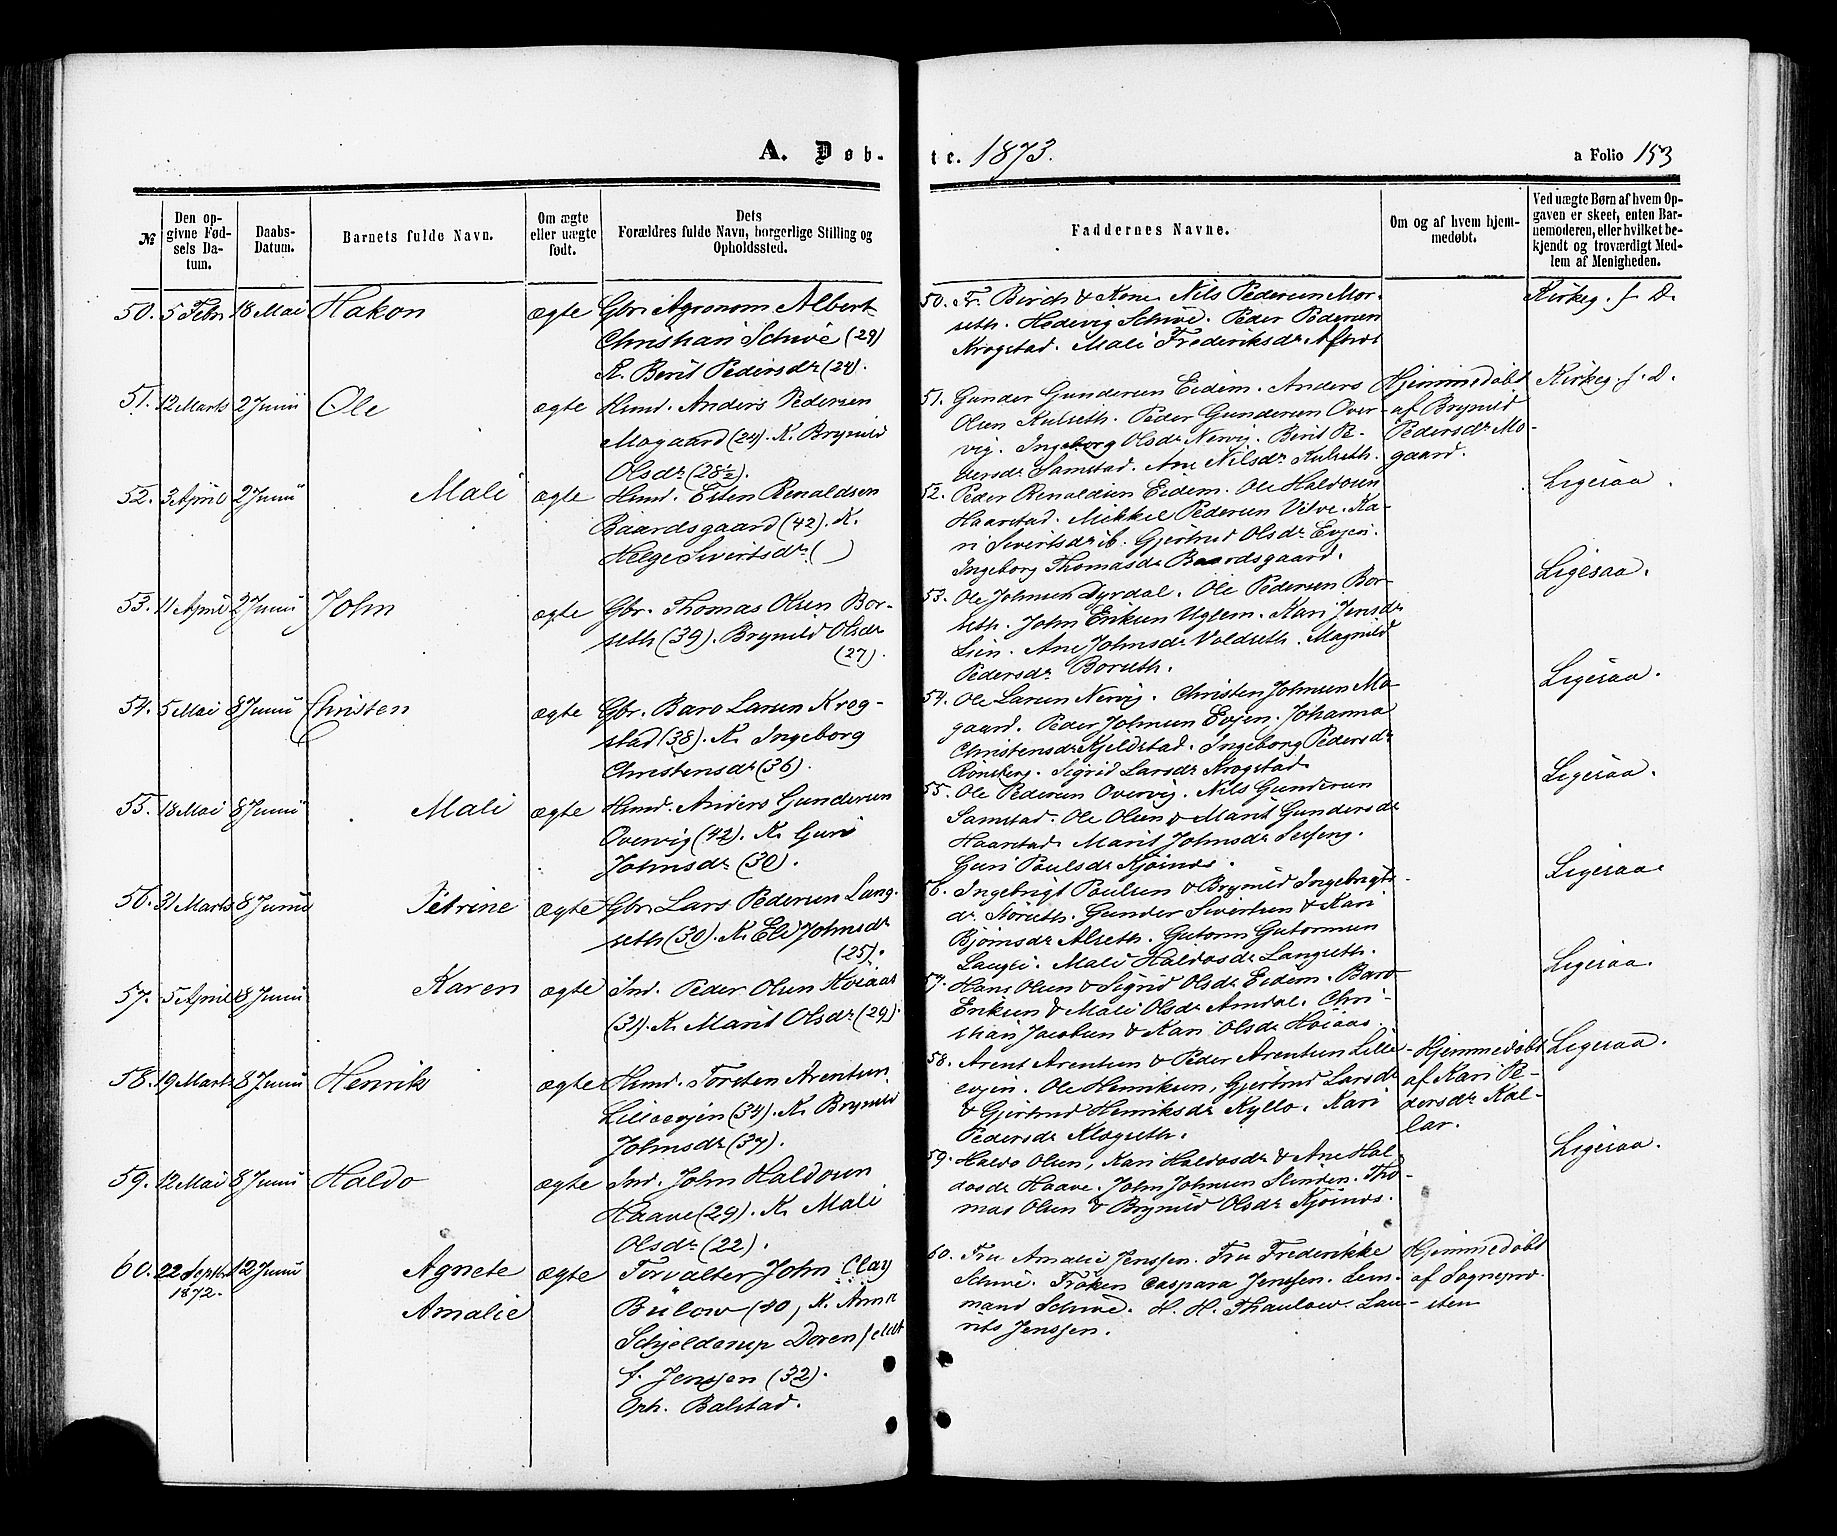 A. Døb-
te. 1873.
a Folio 153
№
Den op-
givne Fød-
sels Da-
tum.
Daabs-
Datum.
Barnets fulde Navn.
Om ægte
eller uægte
født.
Dets
Forældres fulde Navn, borgerlige Stilling og
Opholdssted.
Faddernes Navne.
Om og af hvem hjem-
medøbt.
Ved uægte Børn af hvem Op-
gaven er skeet, enten Bar-
nemoderen, eller hvilket be-
kjendt og troværdigt Med-
lem af Menigheden.
50. 5 Febr 18 Mai Hakon ægte Gbr. Agronom Albert
Christian Schive (29)
K. Berit Pedersdr (24).
50. Fr. Birch & Kone. Nils Pedersen Mor-
seth. Hedevig Schive. Peder Pedersen
Krogstad. Mali Frederiksdr
Kirkeg. f. D.
51. 12 Marts 2 Junii Ole ægte Hmd. Anders Pedersen
Mogaard (24). K. Brynild
Olsdr (28½).
51. Gunder Gundersen Eidem. Anders
Olsen Kulseth. Peder Gundersen Over-
vig. Ingeborg Olsdr Nervig. Berit Pe-
dersdr Samstad. Ane Nilsdr Kulseth.
Hjemmedøbt
af Brynild
Pedersdr Mo-
gaard.
Kirkeg. f. D.
52. 3 April 2 Junii Mali ægte Hmd. Esten Renaldsen
Baardsgaard (42). K.
Helge Sivertsdr ( )
52. Peder Renaldsen Eidem. Ole Haldosen
Haarstad. Mikkel Pedersen Vilve. Ka-
ri Sivertsdr ib. Gjertrud Olsdr Evjen.
Ingeborg Thomasdr Baardsgaard.
Ligesaa.
53. 11 April 2 Junii John ægte Gbr. Thomas Olsen Bor-
seth (39). Brynild Olsdr
(27).
53. Ole Johnsen Dyrdal. Ole Pedersen Bor-
seth. John Eriksen Uglem. Kari Jensdr
Lien. Ane Johnsdr Voldseth. Magnild
Pedersdr Borseth.
Ligesaa.
54. 5 Mai 8 Junii Christen ægte Gbr. Baro Larsen Krog-
stad (38). K. Ingeborg
Christensdr (36).
54. Ole Larsen Nervig. Christen Johnsen Mo-
gaard. Peder Johnsen Evjen. Johanna
Christensdr Kjeldstad. Ingeborg Pedersdr
Rønsberg. Sigrid Larsdr Krogstad.
Ligesaa.
55. 18 Mai 8 Junii Mali ægte Hmd. Anders Gundersen
Overvig (42). K. Guri
Johnsdr (30).
55. Ole Pedersen Overvig. Nils Gundersen
Samstad. Ole Olsen & Marit Gundersdr
Haarstad. Marit Johnsdr Sesseng.
Guri Paulsdr Kjøsnes.
Ligesaa.
56. 31 Marts 8 Junii Petrine ægte Gbr. Lars Pedersen Lang-
seth (30). K. Eli Johnsdr
(25).
56. Ingebrigt Paulsen & Brynild Ingebrigts-
dr. Størseth. Gunder Sivertsen & Kari
Bjørnsdr Alseth. Gutorm Gutormsen
Langli. Mali Haldosdr Langseth.
Ligesaa.
57. 5 April 8 Junii Karen ægte Ind. Peder Olsen Hviaas
(31). K. Marit Olsdr (29).
57. Hans Olsen & Sigrid Olsdr Eidem. Baro
Eriksen & Mali Olsdr Amdal. Chri-
stian Jacobsen & Kari Olsdr Hviaas.
Ligesaa.
58. 19 Marts 8 Junii Henrik ægte Hmd. Torsten Arentsen
Lilleevjen (34). K. Brynild
Johnsdr (37).
58. Arent Arentsen & Peder Arentsen Lille-
evjen. Ole Henriksen, Gjertrud Larsdr
& Gjertrud Henriksdr Kyllo. Kari
Pedersdr Klegseth.
Hjemmedøbt
af Kari Pe-
dersdr Kal-
lar.
Ligesaa.
59. 12 Mai 8 Junii Haldo ægte Ind. John Haldosen
Haave (29). K. Mali
Olsdr (22).
59. Haldo Olsen, Kari Haldosdr & Ane Hal-
dosdr Haave. John Johnsen Slinden. Tho-
mas Olsen & Brynild Olsdr Kjøsnes.
Ligesaa.
60. 22 Septbr 12 Junii Agnete ægte Forvalter John Clay
1872.
Amalie Bülow (40, K. Anna
Schjelderup Dorenfeldt
f. Jenssen (32).
Oph. Balstad.
60. Fru Amalie Jenssen. Fru Frederikke
Schive. Frøken Caspara Jenssen. Lens-
mand Schive. H. H. Thaulow. Lau-
rits Jenssen.
Hjemmedøbt
af Sognepre-
sten